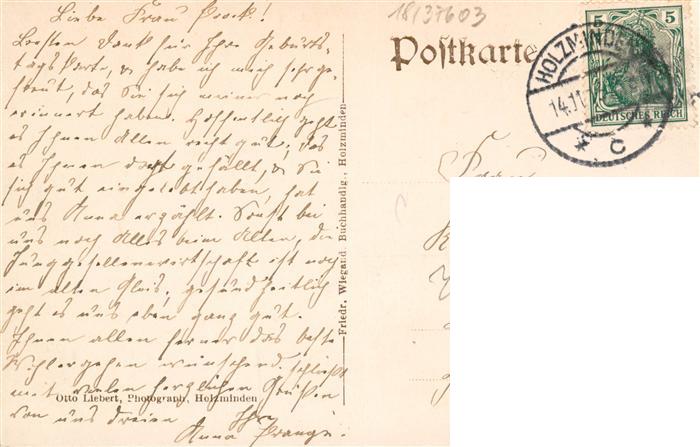 Liebe Frau Proek!
Besten Dank für Ihre Geburts-
tagskarte, & habe ich mich sehr ge-
freut, das Sie sich meiner noch
erinnert haben. Hoffentlich geht
es Ihnen Allen recht gut; das
es Ihnen dort gefällt, & Sie
sich gut eingelebt haben, hat
uns Anna erzählt. Sonst bei
uns noch Alles beim Alten, die
Junggesellenwirtschaft ist noch
im alten Gleis, gesundheitlich
geht es uns eben ganz gut.
Ihnen allen ferner das beste
Wohlergehen wünschend schließt
mit vielen herzlichen Grüßen
von uns dreien Ihre
Anna Prange.
Otto Liebert, Photograph, Holzminden
Friedr. Wiegand, Buchhandlg., Holzminden
18/37603
Postkarte
HOLZMINDEN
14.11
* C *
5 5
DEUTSCHES REICH